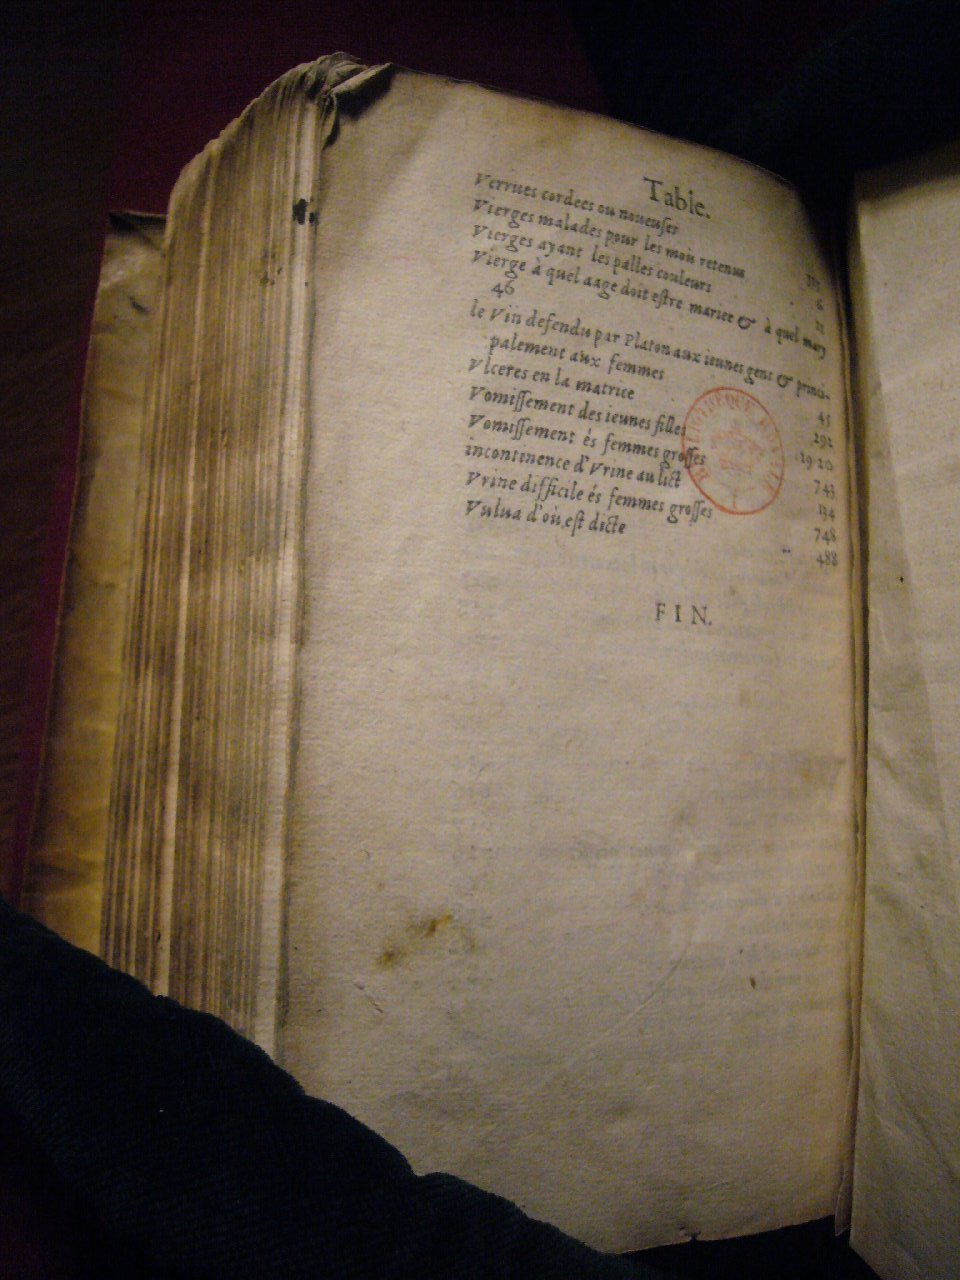 Table.
Verrues cordees ou noueuses
Vierges malades pour les mois retenus 6
Vierges ayant les palles couleurs II
Vierge à quel aage doit estre mariee & à quel mary
46
le Vin defendu par Platon aux ieunes gens & princi-
palement aux femmes 45
Vlceres en la matrice 292
Vomissement des ieunes filles 19 20
Vomissement és femmes grosses 743
incontinence d'Vrine au lict 134
Vrine difficile és femmes grosses 748
Vulua d'où est dicte 488
FIN.